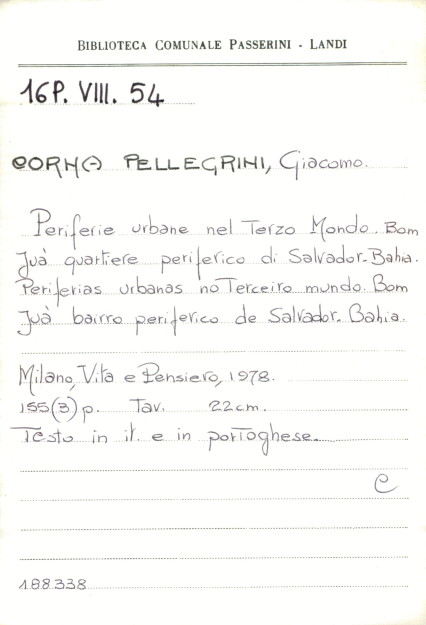 BIBLIOTECA COMUNALE PASSERINI - LANDI
16P. VIII. 54
CORNA PELLEGRINI, Giacomo.
Periferie urbane nel Terzo Mondo. Bom
Juà quartiere periferico di Salvador-Bahia.
Periferias urbanas no Terceiro mundo. Bom
Juà bairro periferico de Salvador. Bahia.
Milano, Vita e Pensiero, 1978.
155(3) p. Tav. 22cm.
Testo in it. e in portoghese.
C
188338